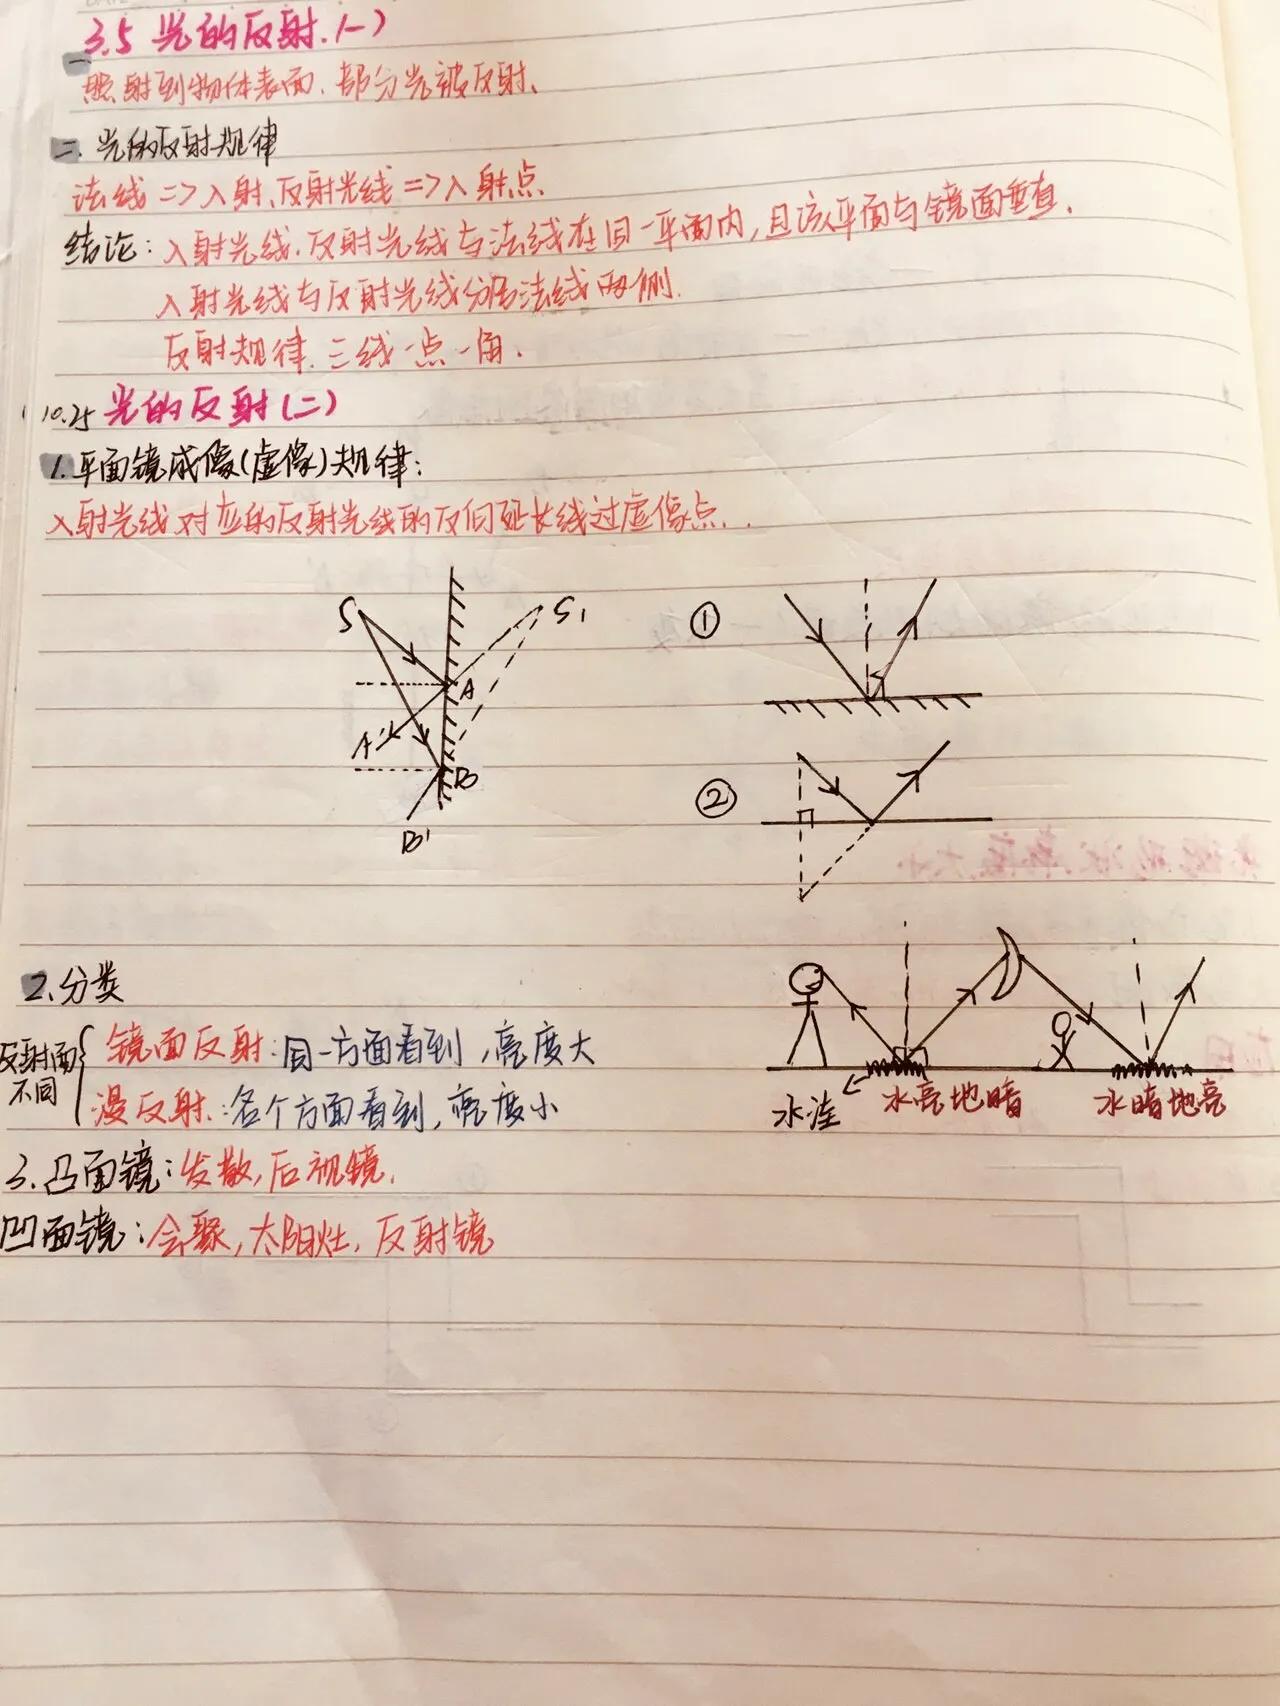 3.5 光的反射.(一)
一
照射到物体表面.部分光被反射.
二. 光的反射规律
法线=>入射、反射光线=>入射点
结论: 入射光线.反射光线与法线在同一平面内,且该平面与镜面垂直.
入射光线与反射光线分居法线两侧.
反射规律.三线一点一角.
10.25 光的反射(二)
1.平面镜成像(虚像)规律:
入射光线对应的反射光线的反向延长线过虚像点.
S
S1
A
A'
B
B'
①
②
2.分类
反射面不同
镜面反射:同一方面看到,亮度大
漫反射.:各个方面看到,亮度小
水洼
水亮地暗
水暗地亮
3.凸面镜:发散,后视镜.
凹面镜:会聚,太阳灶,反射镜